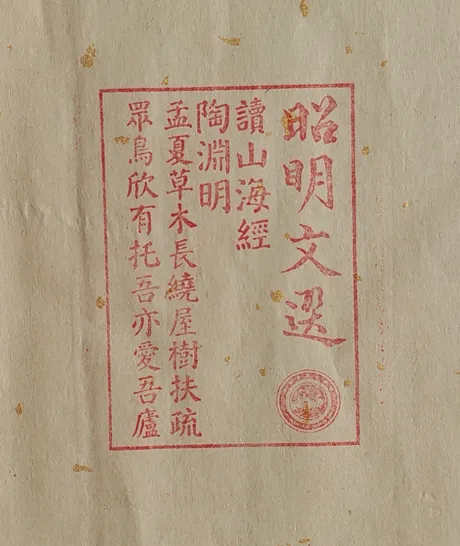 昭明文选
讀山海經
陶淵明
孟夏草木長繞屋樹扶疏
眾鳥欣有托吾亦愛吾廬